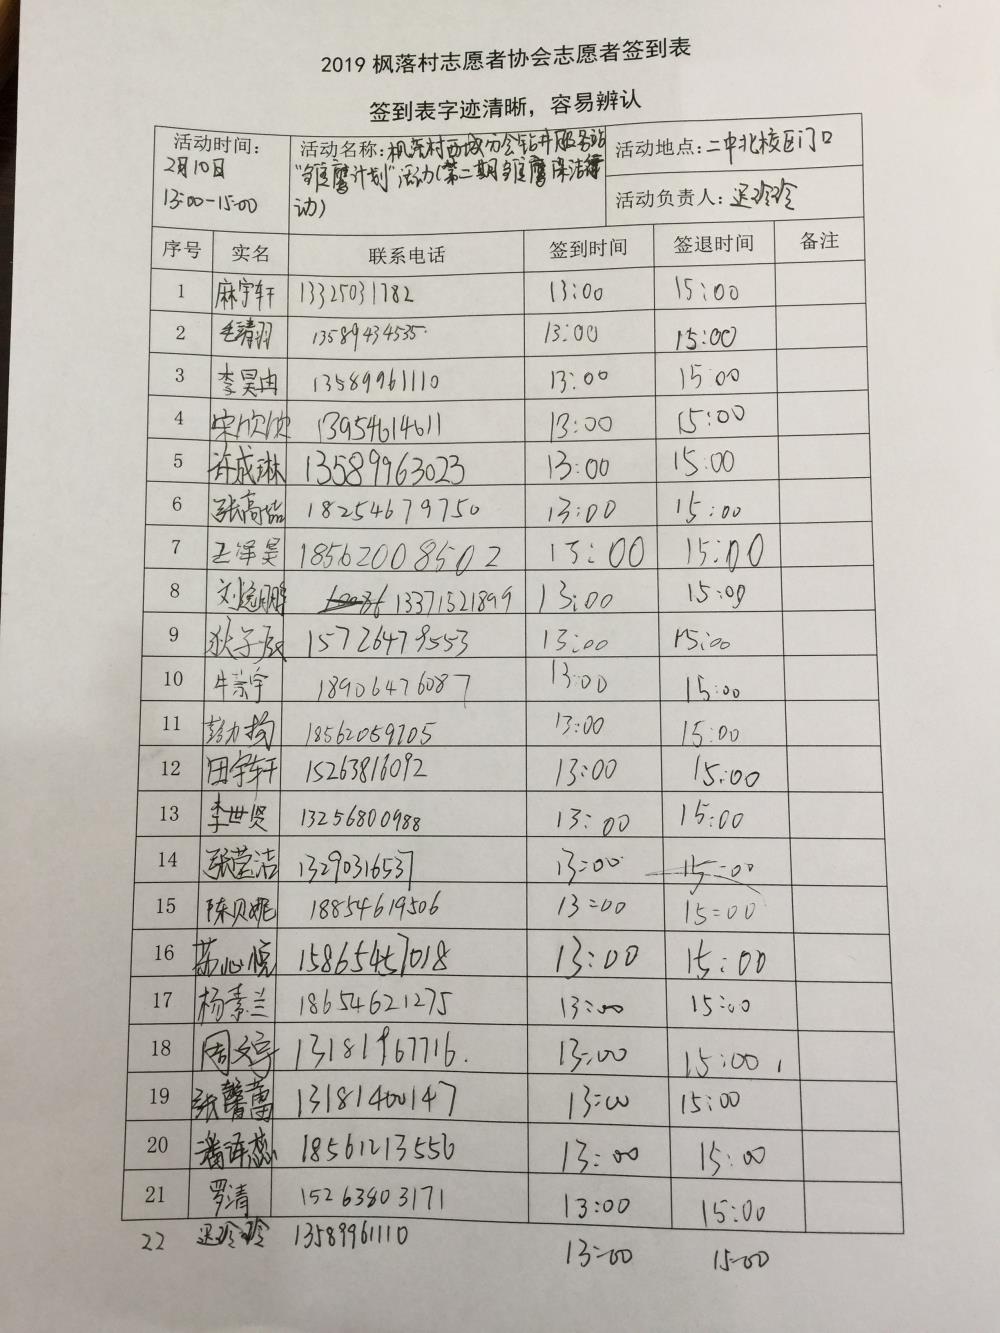 2019 枫落村志愿者协会志愿者签到表
签到表字迹清晰，容易辨认
活动时间：
2月10日
13:00-15:00
活动名称：枫落村西城分会钻井服务站
"雏鹰计划"活动(第二期雏鹰保洁行
动)
活动地点：二中北校区门口
活动负责人：迟玲玲
序号 实名 联系电话 签到时间 签退时间 备注
1 麻宇轩 13325031782 13:00 15:00
2 毛靖羽 13589434535 13:00 15:00
3 李昊冉 13589961110 13:00 15:00
4 宋欣欣 13954614611 13:00 15:00
5 许成琳 13589963023 13:00 15:00
6 张高喆 18254679750 13:00 15:00
7 王泽昊 18562008502 13:00 15:00
8 刘逸鹏 13371521899 13:00 15:00
9 狄子辰 15726479553 13:00 15:00
10 牛崇宇 18906476087 13:00 15:00
11 彭力扬 18562059705 13:00 15:00
12 田宇轩 15263816092 13:00 15:00
13 李世贤 13256800988 13:00 15:00
14 张莹洁 13290316537 13:00 15:00
15 陈贝妮 18854619506 13:00 15:00
16 苏心悦 15865457018 13:00 15:00
17 杨素兰 18654621275 13:00 15:00
18 周文宇 13181967716. 13:00 15:00
19 张馨 13181400147 13:00 15:00
20 潘 18561213556 13:00 15:00
21 罗清 15263803171 13:00 15:00
22 迟玲玲 13589961110 13:00 15:00